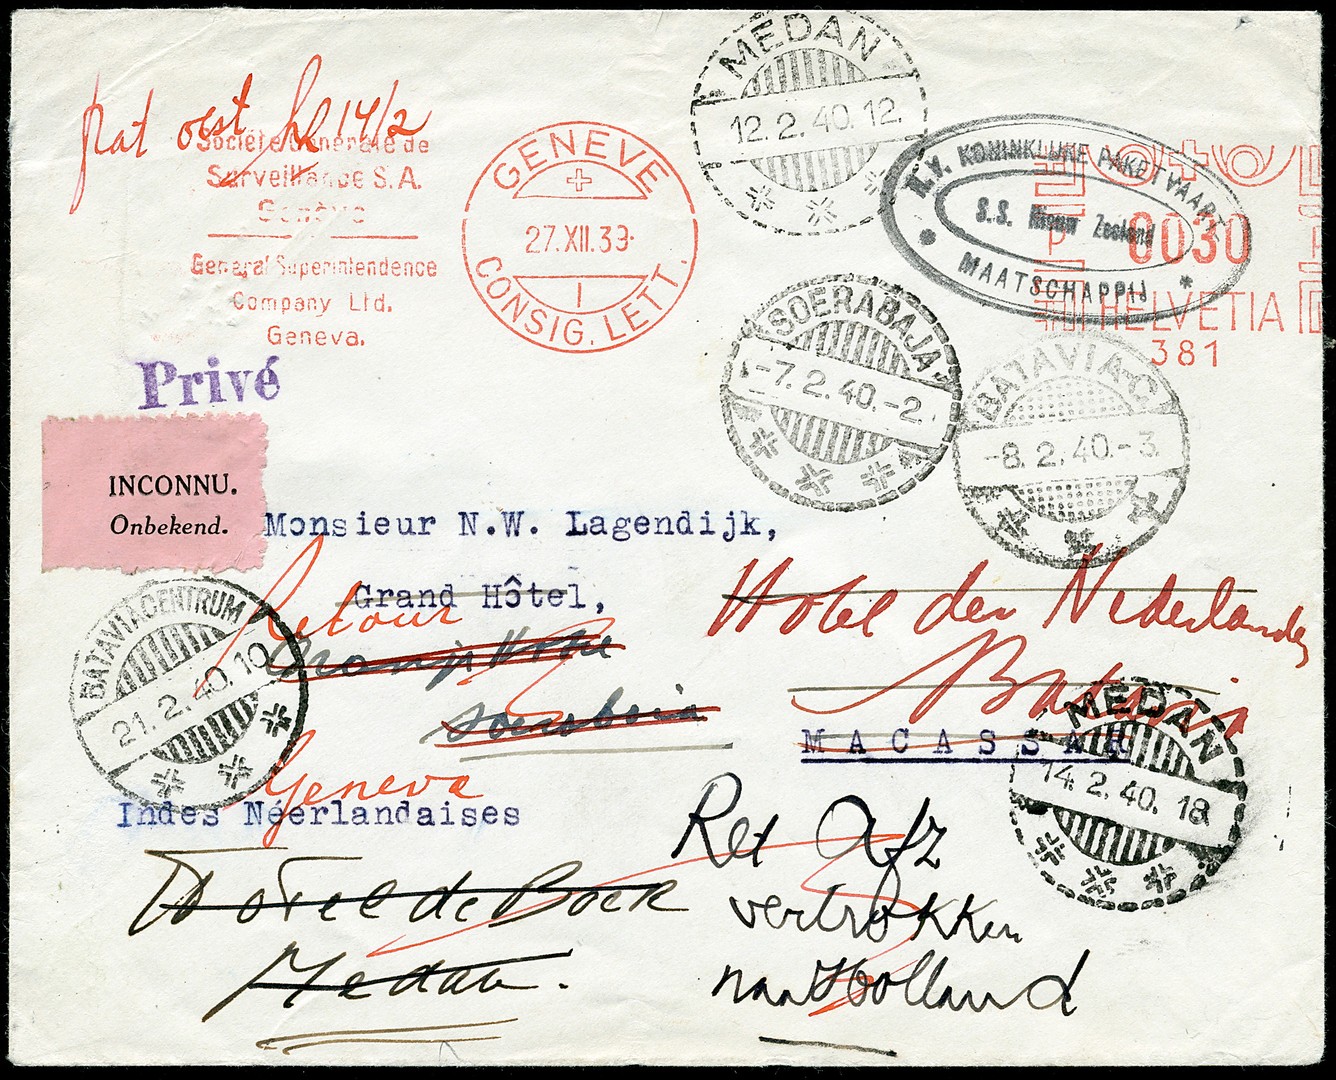 MEDAN
12.2.40.12.
hl 14/2
Société Générale de
Surveillance S.A.
Genève
General Superintendence
Company Ltd.
Geneva.
GENEVE
27.XII.39.
1
CONSIG. LETT.
N.V. KONINKLIJKE PAKETVAART
S.S. Nieuw Zeeland
MAATSCHAPPIJ
0030
HELVETIA
381
SOERABAJA
-7.2.40.-2.
BATAVIA-C
-8.2.40.-3.
Privé
INCONNU.
Onbekend.
Monsieur N.W. Lagendijk,
Grand Hôtel,
Retour
Oranje Hotel
Soerabaia
Hotel der Nederlanden
Batavia
MACASSAR
BATAVIA CENTRUM
21.2.40.10
MEDAN
14.2.40.18
Geneva
Indes Néerlandaises
Hotel de Boer
Medan.
Ret Afz
vertrokken
naar Holland